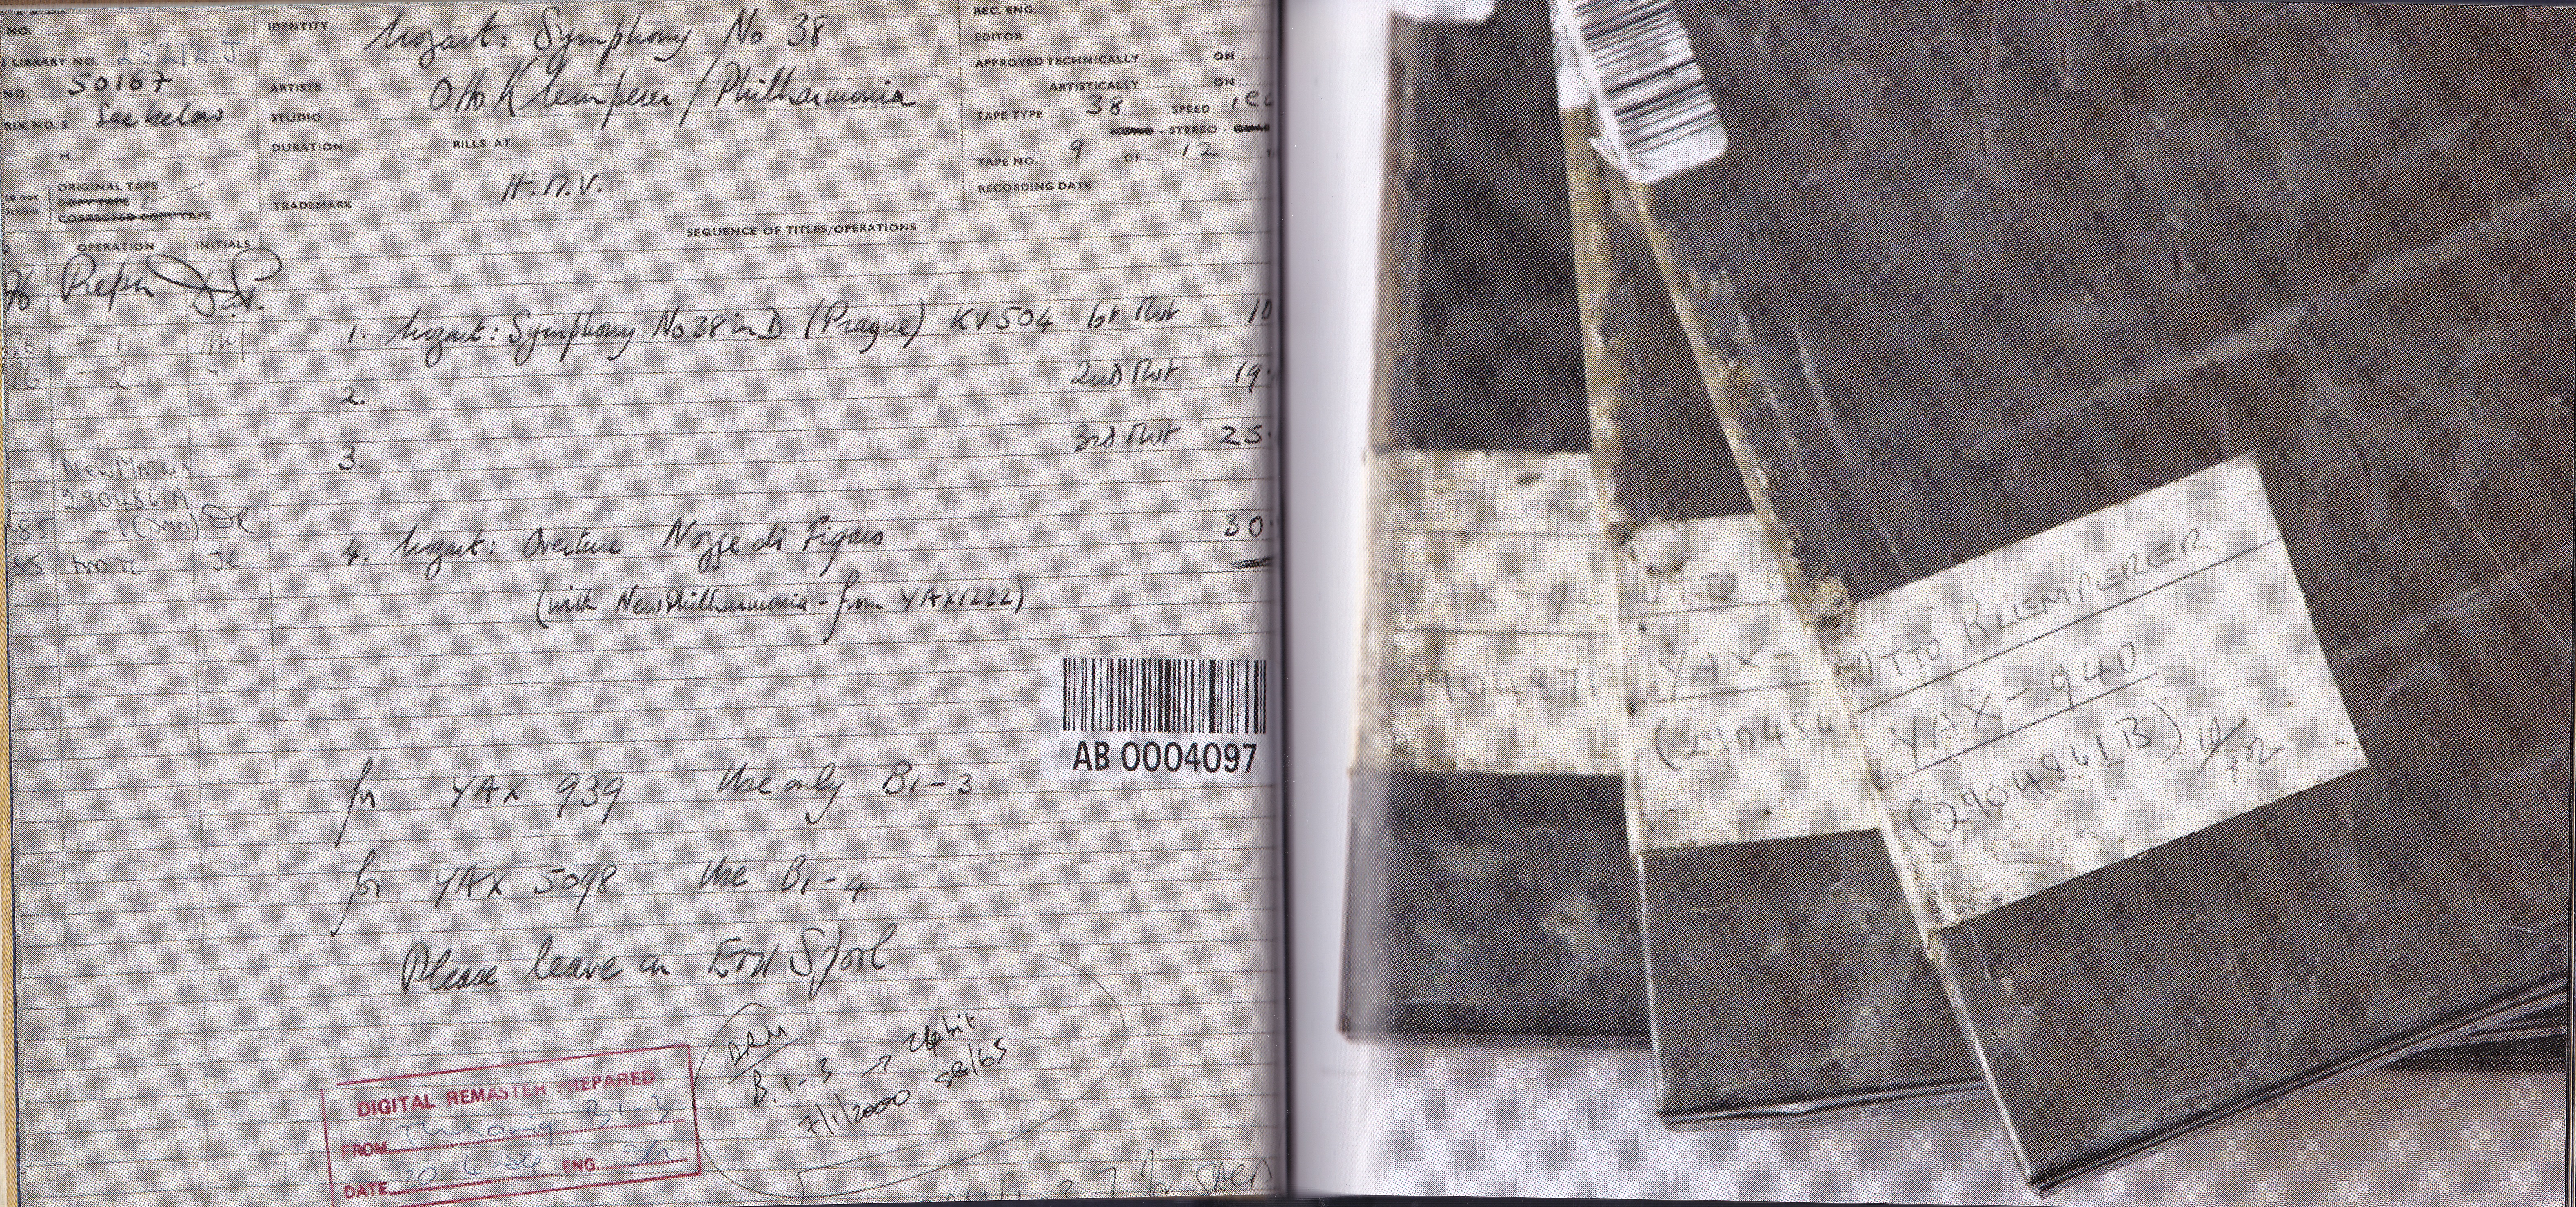 NO.
IDENTITY Mozart: Symphony No 38
LIBRARY NO. 25212.J.
NO. 50167
ARTISTE Otto Klemperer / Philharmonia
RIX NO. S See below
STUDIO
M
DURATION RILLS AT
H.M.V.
TRADEMARK
te not
icable
ORIGINAL TAPE
COPY TAPE
CORRECTED COPY TAPE
REC. ENG.
EDITOR
APPROVED TECHNICALLY ON
ARTISTICALLY ON
TAPE TYPE 38 SPEED
MONO - STEREO - QUAD
TAPE NO. 9 OF 12
RECORDING DATE
OPERATION INITIALS
SEQUENCE OF TITLES/OPERATIONS
76
76 - 1
76 - 2
1. Mozart: Symphony No 38 in D (Prague) KV 504 1st Mvt 10
2. 2nd Mvt 19.
3. 3rd Mvt 25.
NEW MATRIX
2904861A
-85 - 1 (DMM) DR
85 JC.
4. Mozart: Overture Nozze di Figaro 30
(with New Philharmonia - from YAX1222)
AB 0004097
for YAX 939 Use only B1-3
for YAX 5098 Use B1-4
Please leave on EMI Spool
DRM
B.1-3 → 24bit
7/1/2000
DIGITAL REMASTER PREPARED
FROM B1-3
DATE 20-4- ENG.
for
OTTO KLEMP
YAX-94
2904871
OTTO K
YAX-
(290486
OTTO KLEMPERER
YAX-940
(2904861B) 10/12